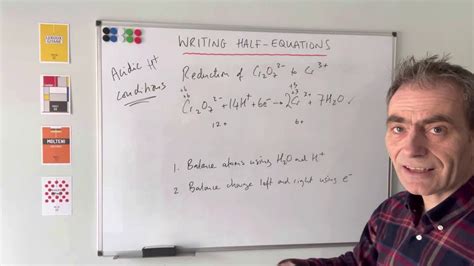 WRITING HALF-EQUATIONS
Acidic H⁺
conditions
Reduction of Cr₂O₇²⁻ to Cr³⁺
+6 +6 +3
Cr₂O₇²⁻ + 14H⁺ + 6e⁻ → 2Cr³⁺ + 7H₂O ✓
12+ 6+
1. Balance atoms using H₂O and H⁺
2 Balance charge left and right using e⁻
MOLTENI